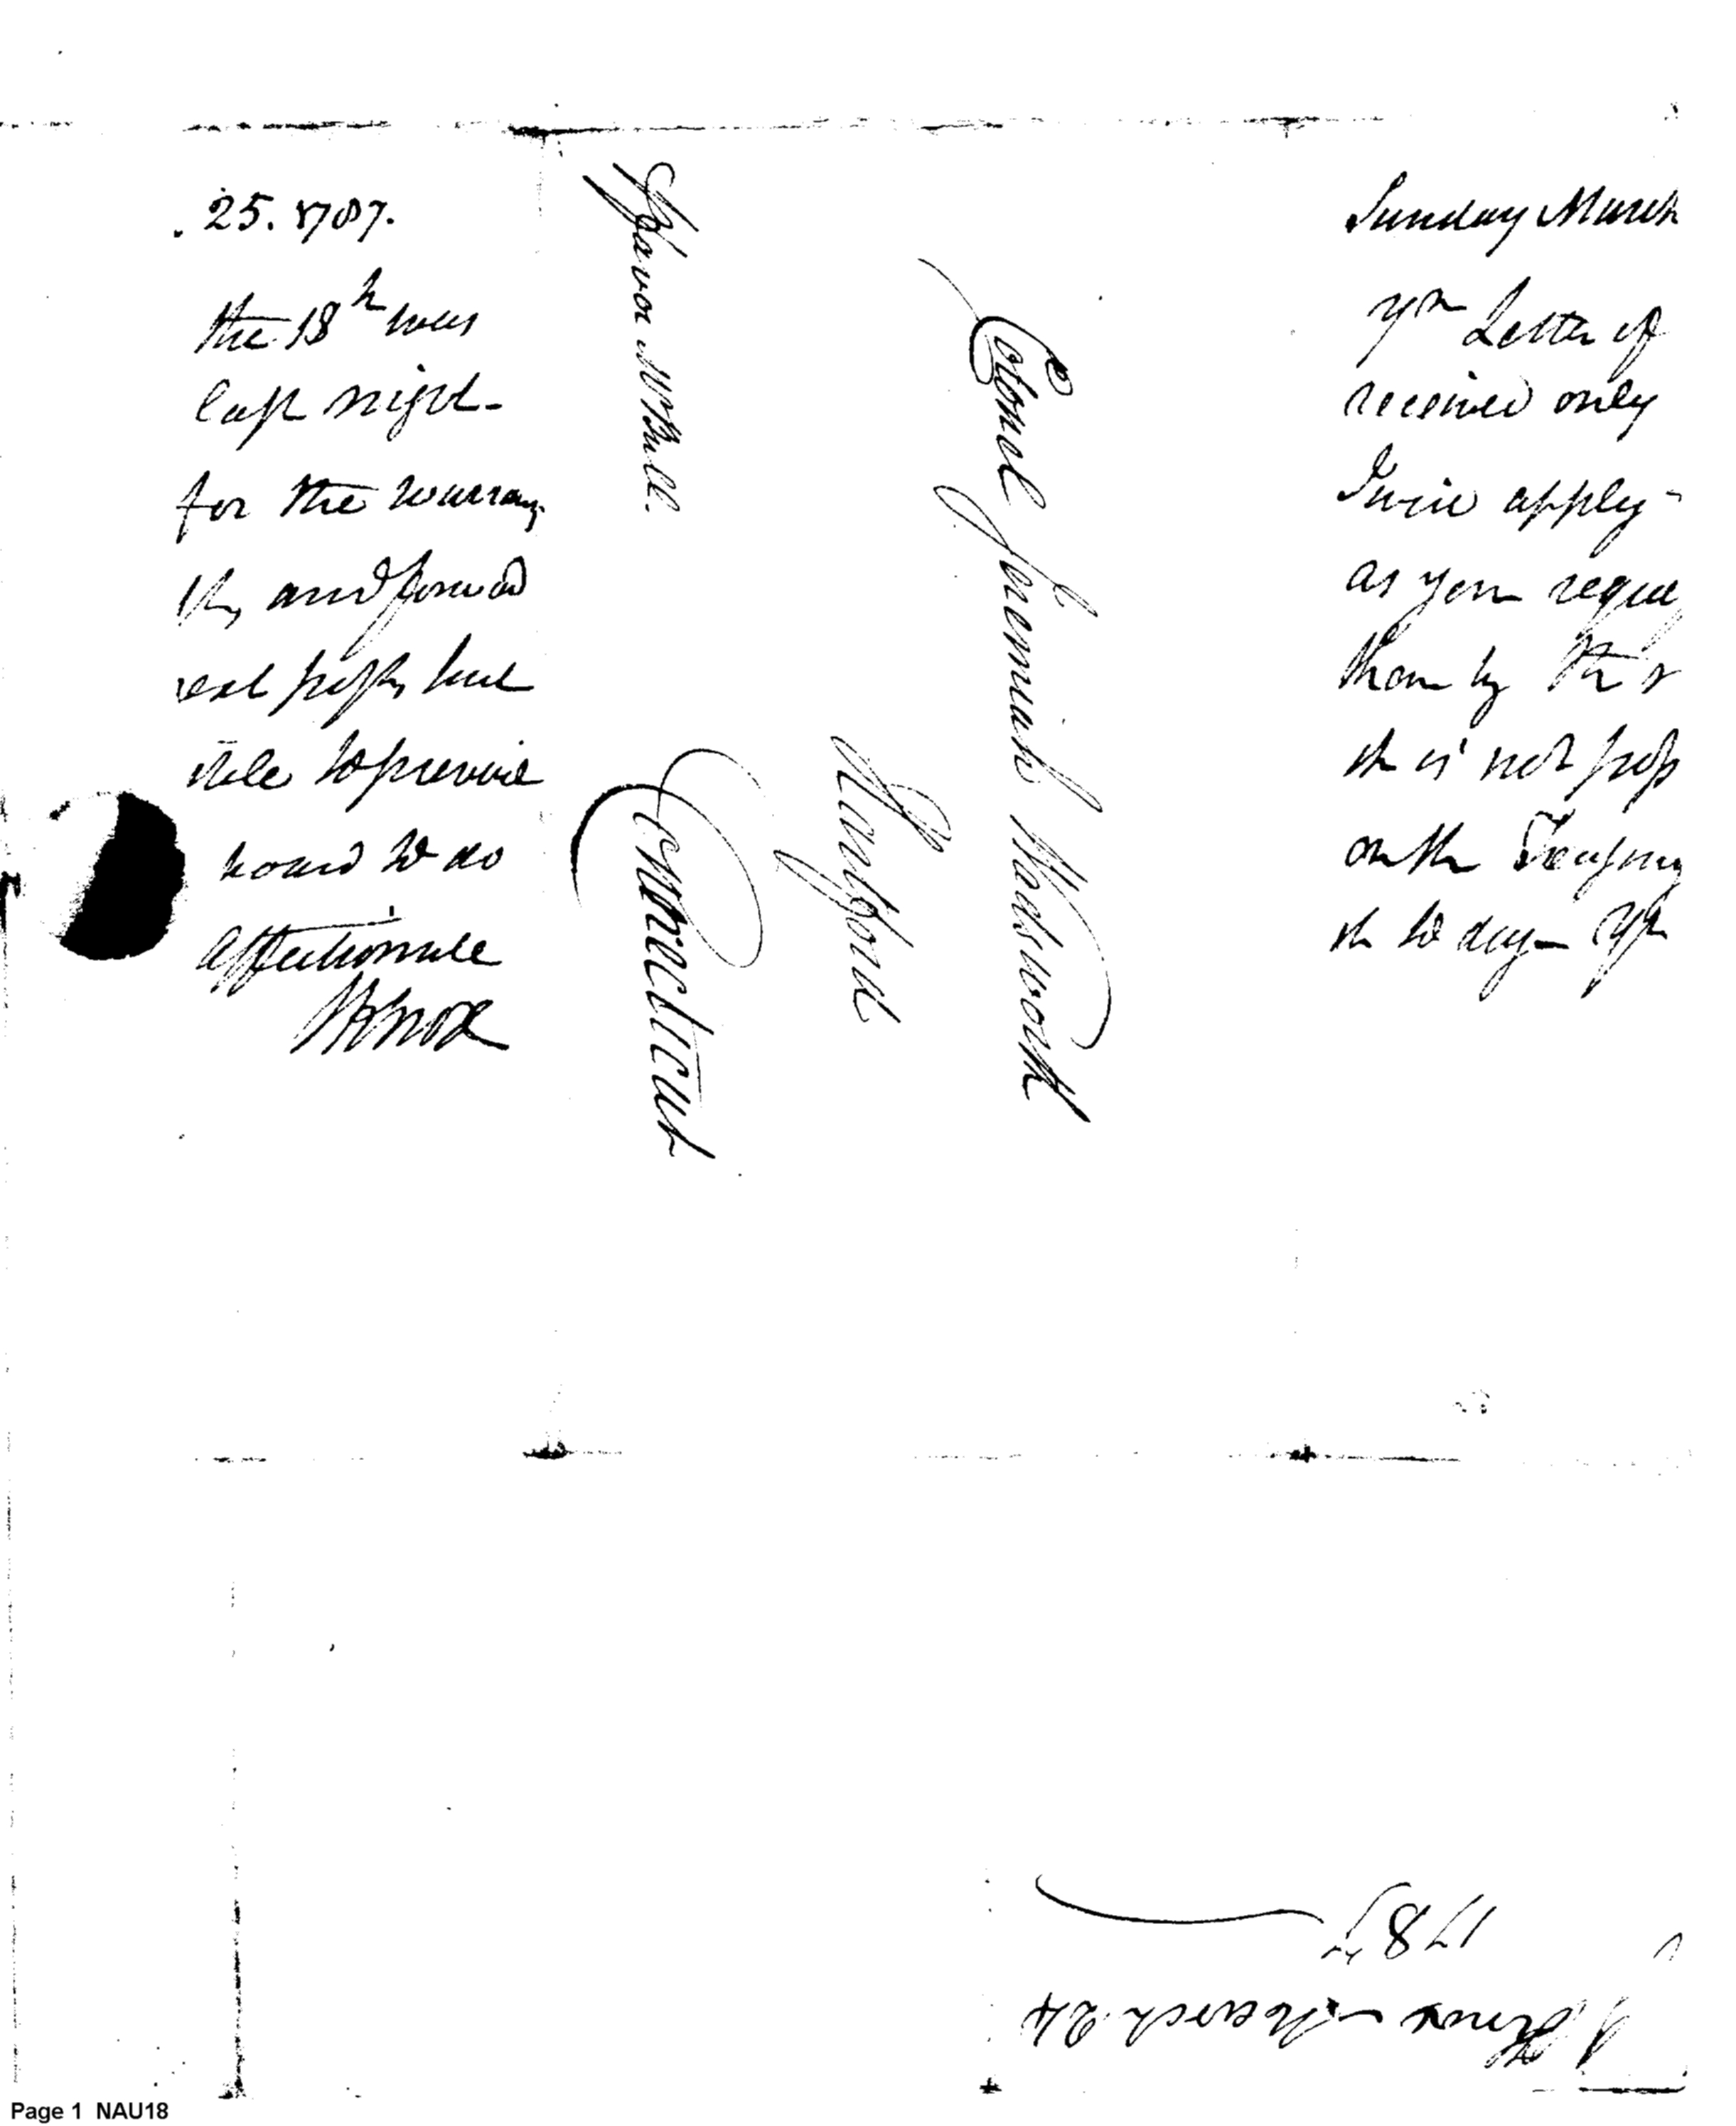 25. 1787.
the 18h was
last night-
for the warran
ts, and forward
ext post, but
ible to prevail
board to do
affectionate
HKnox
favor Mr Bull.
Colonel Jeremiah Wadsworth
Hartford
Connecticut
Sunday March
Yr Letter of
received only
I will apply-
as you reque
them by the n
it is not poss
on the Treasury
it to day- Yr
Knox March 24
1787
Page 1 NAU18